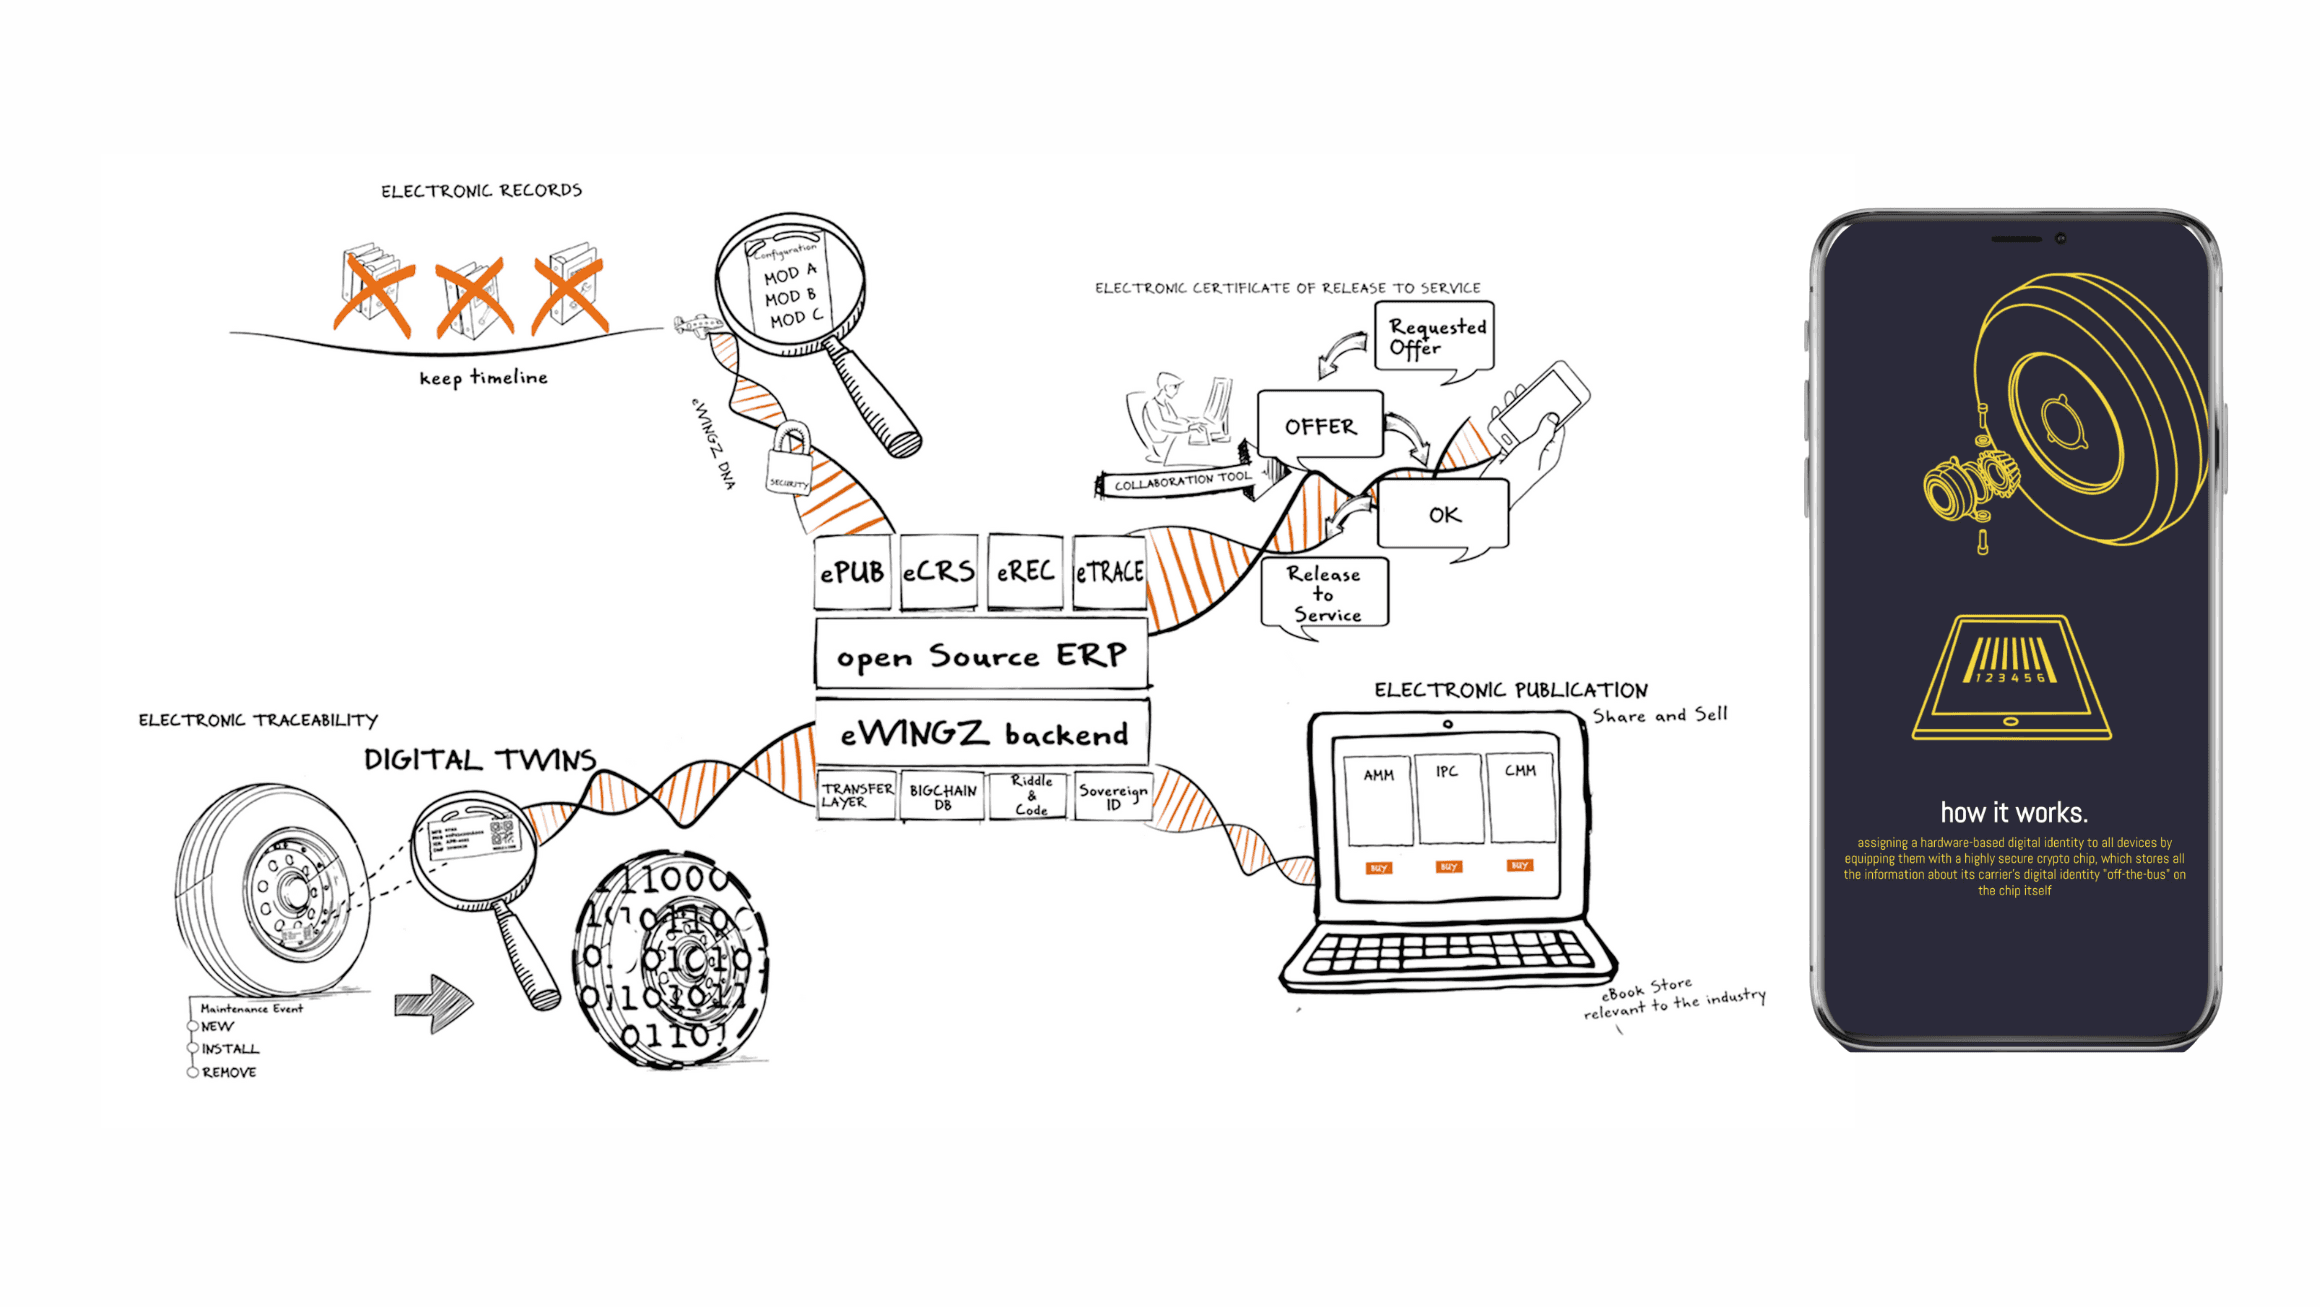 ELECTRONIC RECORDS
keep timeline
Configuration
MOD A
MOD B
MOD C
eWINGZ DNA
SECURITY
ELECTRONIC CERTIFICATE OF RELEASE TO SERVICE
Requested
Offer
OFFER
COLLABORATION TOOL
OK
Release
to
Service
ePUB eCRS eREC eTRACE
open Source ERP
eWINGZ backend
TRANSFER
LAYER
BIGCHAIN
DB
Riddle
&
Code
Sovereign
ID
ELECTRONIC TRACEABILITY
DIGITAL TWINS
Maintenance Event
NEW
INSTALL
REMOVE
ELECTRONIC PUBLICATION
Share and Sell
AMM IPC CMM
BUY BUY BUY
eBook Store
relevant to the industry
123456
how it works.
assigning a hardware-based digital identity to all devices by
equipping them with a highly secure crypto chip, which stores all
the information about its carrier's digital identity "off-the-bus" on
the chip itself